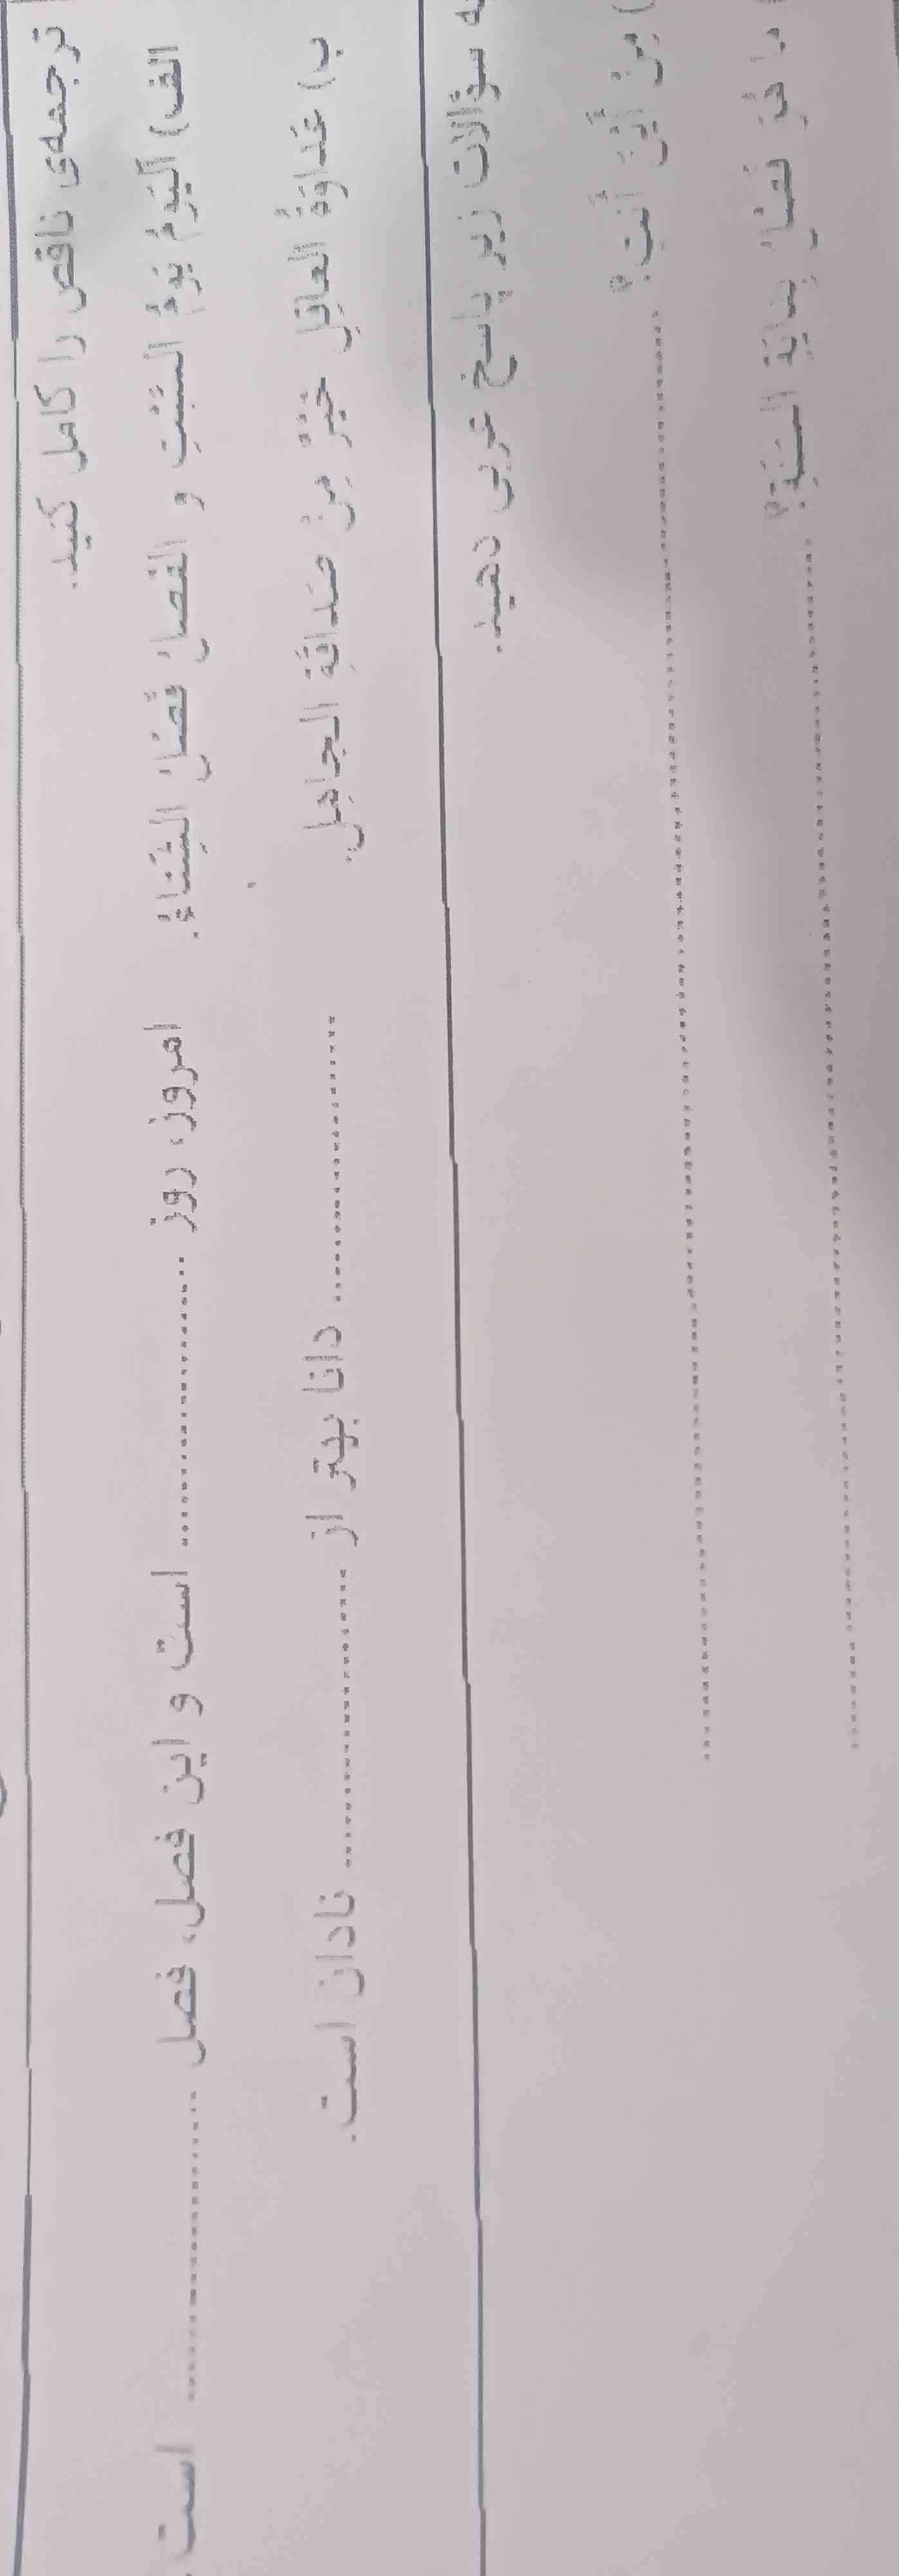 ترجمه‌ی ناقص را کامل کنید.
الف) اَلیَومُ یَومُ السَّبْتِ و الفَصلُ فَصْلُ الشِّتاءِ. امروز، روز .................... است و این فصل، فصل .................... است.
ب) عَداوَةُ العاقِلِ خَیْرٌ مِنْ صَداقَةِ الجاهِلِ. .................... دانا بهتر از .................... نادان است.
سؤالات زیر پاسخ عربی دهید.
) مِنْ أَیْنَ أَنتِ؟ ....................
فَصْلٍ بِدایَةُ السَّنَةِ؟ ....................